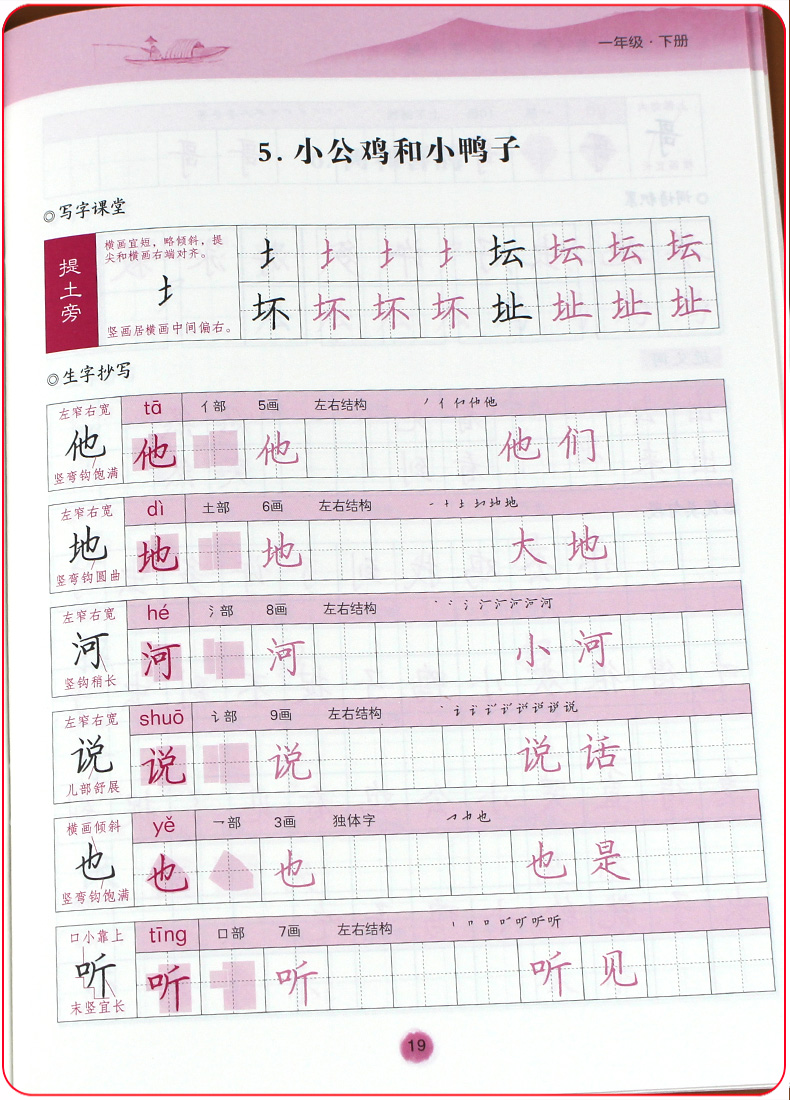 一年级·下册
5.小公鸡和小鸭子
◎写字课堂
提土旁
横画宜短，略倾斜，提
尖和横画右端对齐。
土
竖画居横画中间偏右。
土 土 土 土 坛 坛 坛 坛
坏 坏 坏 坏 址 址 址 址
◎生字抄写
左窄右宽 tā 亻部 5画 左右结构
他 他 他 他 们
竖弯钩饱满
左窄右宽 dì 土部 6画 左右结构
地 地 地 大 地
竖弯钩圆曲
左窄右宽 hé 氵部 8画 左右结构
河 河 河 小 河
竖钩稍长
左窄右宽 shuō 讠部 9画 左右结构
说 说 说 说 话
儿部舒展
横画倾斜 yě 乛部 3画 独体字
也 也 也 也 是
竖弯钩饱满
口小靠上 tīng 口部 7画 左右结构
听 听 听 听 见
末竖宜长
19